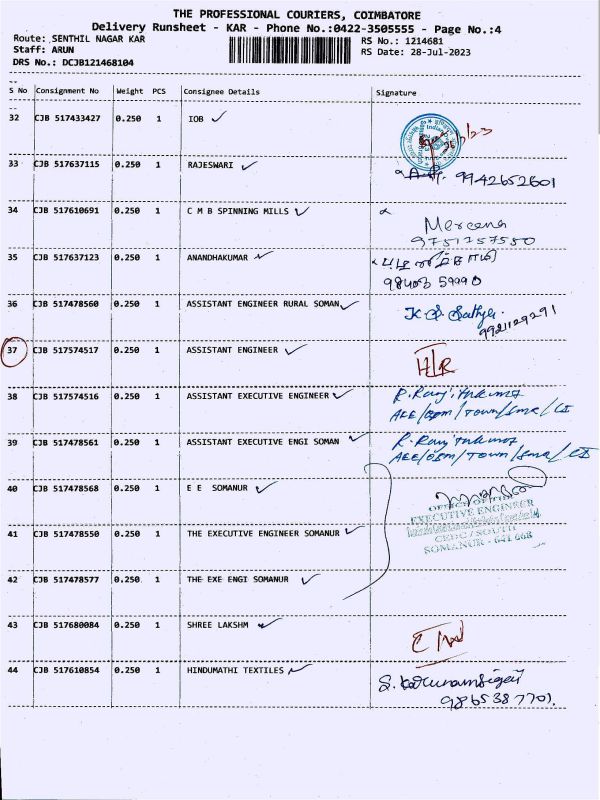 THE PROFESSIONAL COURIERS, COIMBATORE
Delivery Runsheet - KAR - Phone No.:0422-3505555 - Page No.:4
Route: SENTHIL NAGAR KAR
RS No.: 1214681
Staff: ARUN
RS Date: 28-Jul-2023
DRS No.: DCJB121468104
S No Consignment No Weight PCS Consignee Details Signature
32 CJB 517433427 0.250 1 IOB
33 CJB 517637115 0.250 1 RAJESWARI
9942652601
34 CJB 517610691 0.250 1 C M B SPINNING MILLS
Mercena
9751257550
35 CJB 517637123 0.250 1 ANANDHAKUMAR
98403 59990
36 CJB 517478560 0.250 1 ASSISTANT ENGINEER RURAL SOMAN
K. S. Sathya
9921129291
37 CJB 517574517 0.250 1 ASSISTANT ENGINEER
38 CJB 517574516 0.250 1 ASSISTANT EXECUTIVE ENGINEER
AEE/O&M/Town/Sma/
39 CJB 517478561 0.250 1 ASSISTANT EXECUTIVE ENGI SOMAN
AEE/O&M/Town/Sma/
40 CJB 517478568 0.250 1 E E SOMANUR
OFFICE OF THE
EXECUTIVE ENGINEER
41 CJB 517478550 0.250 1 THE EXECUTIVE ENGINEER SOMANUR
CEDC / SOUTH
SOMANUR - 641 668
42 CJB 517478577 0.250 1 THE EXE ENGI SOMANUR
43 CJB 517680084 0.250 1 SHREE LAKSHM
44 CJB 517610854 0.250 1 HINDUMATHI TEXTILES
9865387701.